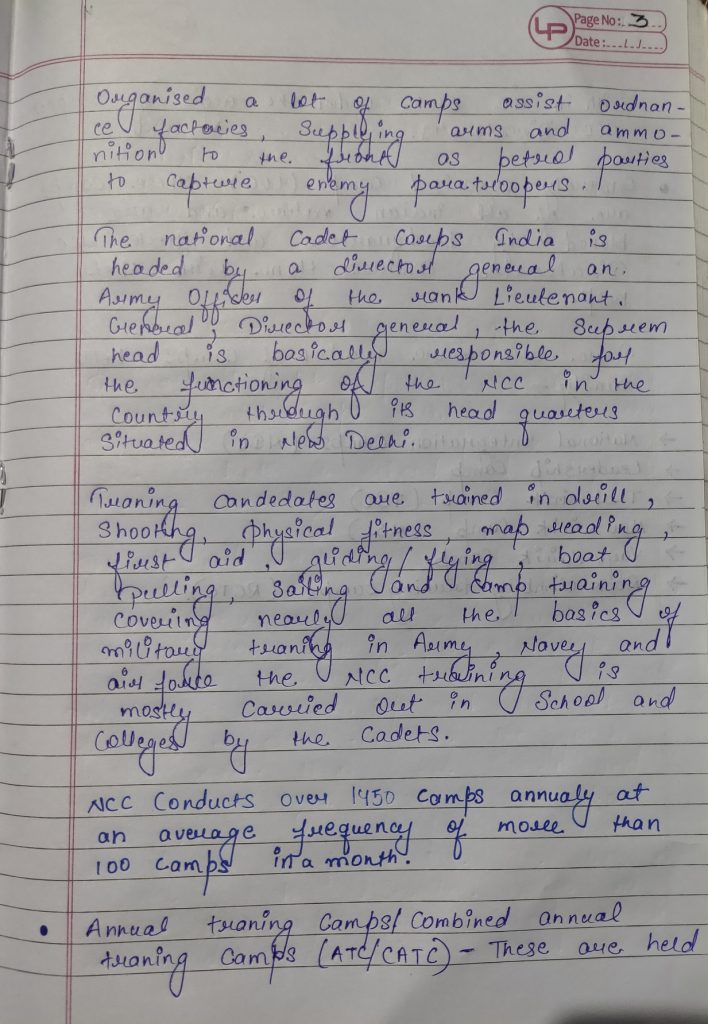 LP Page No: 3
Date: / /
Organised a lot of camps assist ordnan-
ce factories, Supplying arms and ammo-
nition to the front as petrol parties
to capture enemy paratroopers.
The national Cadet Corps India is
headed by a director general an.
Army Officer of the rank Lieutenant.
General, Director general, the Suprem
head is basically responsible for
the functioning of the NCC in the
Country through its head quarters
Situated in New Delhi.
Traning candedates are trained in drill,
Shooting, physical fitness, map reading,
first aid, gliding/flying, boat
pulling, Sailing and Camp training
covering nearly all the basics of
military traning in Army, Navey and
air force the NCC training is
mostly Carried out in School and
Colleges by the Cadets.
NCC Conducts over 1450 Camps annualy at
an average frequency of more than
100 Camps in a month.
• Annual traning Camps/Combined annual
traning Camps (ATC/CATC) - These are held